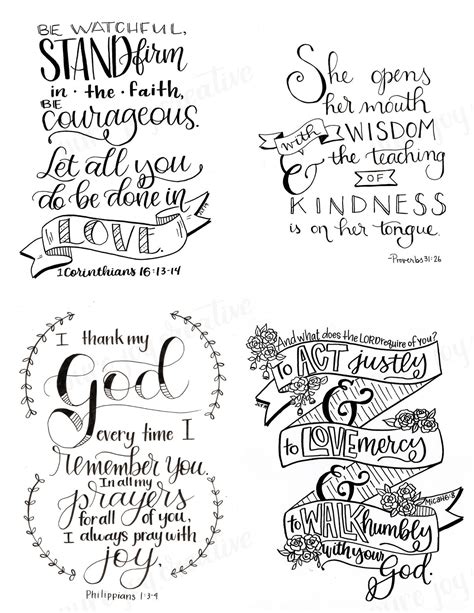 BE WATCHFUL,
STAND firm
in • the • faith,
BE
courageous.
Let all you
do be done in
LOVE.
1 Corinthians 16:13-14
She opens
her mouth
with WISDOM
& the teaching
OF
KINDNESS
is on her tongue.
-Proverbs 31:26
I thank my
God
every time I
remember You.
In all my
prayers
for all of you,
I always pray with
joy.
Philippians 1:3-4
And what does the LORD require of you?
To ACT justly
&
to LOVE mercy
&
Micah 6:8
to WALK humbly
with your
God.